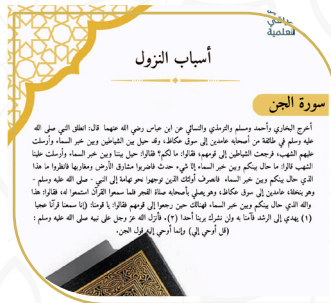 العلمية
أسباب النزول
سورة الجن
أخرج البخاري وأحمد ومسلم والترمذي والنسائي عن ابن عباس رضي الله عنهما قال: انطلق النبي صلى الله
عليه وسلم في طائفة من أصحابه عامدين إلى سوق عكاظ، وقد حيل بين الشياطين وبين خبر السماء وأرسلت
عليهم الشهب، فرجعت الشياطين إلى قومهم، فقالوا: ما لكم؟ فقالوا: حيل بيننا وبين خبر السماء وأرسلت علينا
الشهب قالوا: ما حال بينكم وبين خبر السماء إلا شيء حدث فاضربوا مشارق الأرض ومغاربها فانظروا ما هذا
الذي حال بينكم وبين خبر السماء فانصرف أولئك الذين توجهوا نحو تهامة إلى النبي - صلى الله عليه وسلم -
وهو بنخلة، عامدين إلى سوق عكاظ، وهو يصلي بأصحابه صلاة الفجر فلما سمعوا القرآن استمعوا له، فقالوا: هذا
والله الذي حال بينكم وبين خبر السماء فهنالك حين رجعوا إلى قومهم فقالوا: يا قومنا: (إنا سمعنا قرآنا عجبا
(١) يهدي إلى الرشد فآمنا به ولن نشرك بربنا أحدا (٢). فأنزل الله عز وجل على نبيه صلى الله عليه وسلم :
(قل أوحي إلي) وإنما أوحي إليه قول الجن.